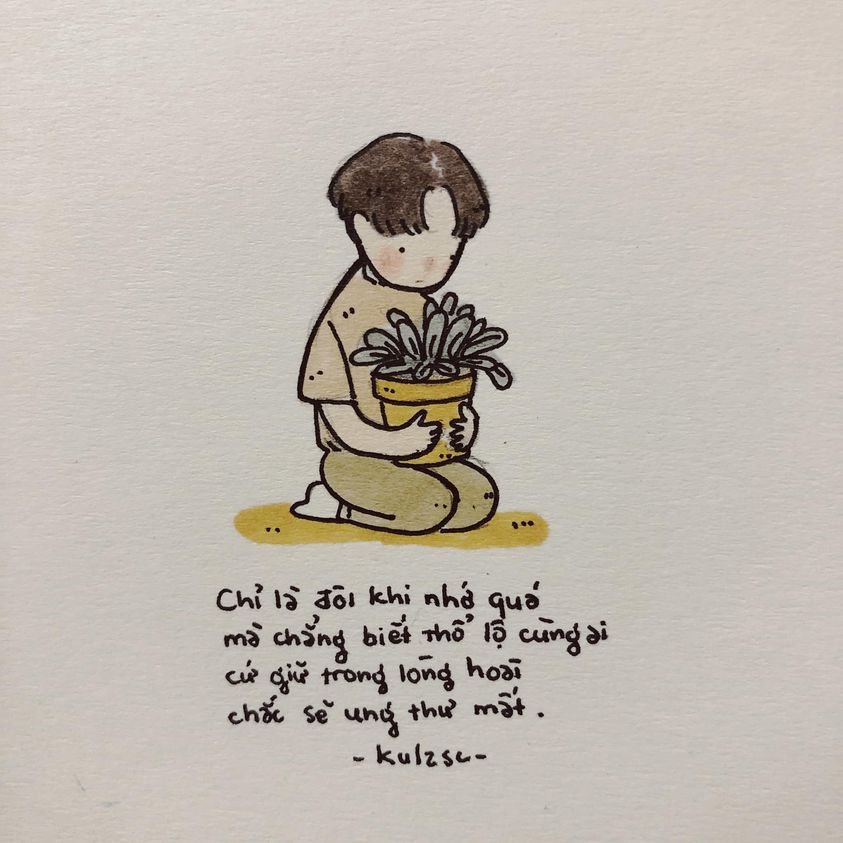 Chỉ là đôi khi nhớ quá
mà chẳng biết thổ lộ cùng ai
cứ giữ trong lòng hoài
chắc sẽ ung thư mất.
- kulzsc -